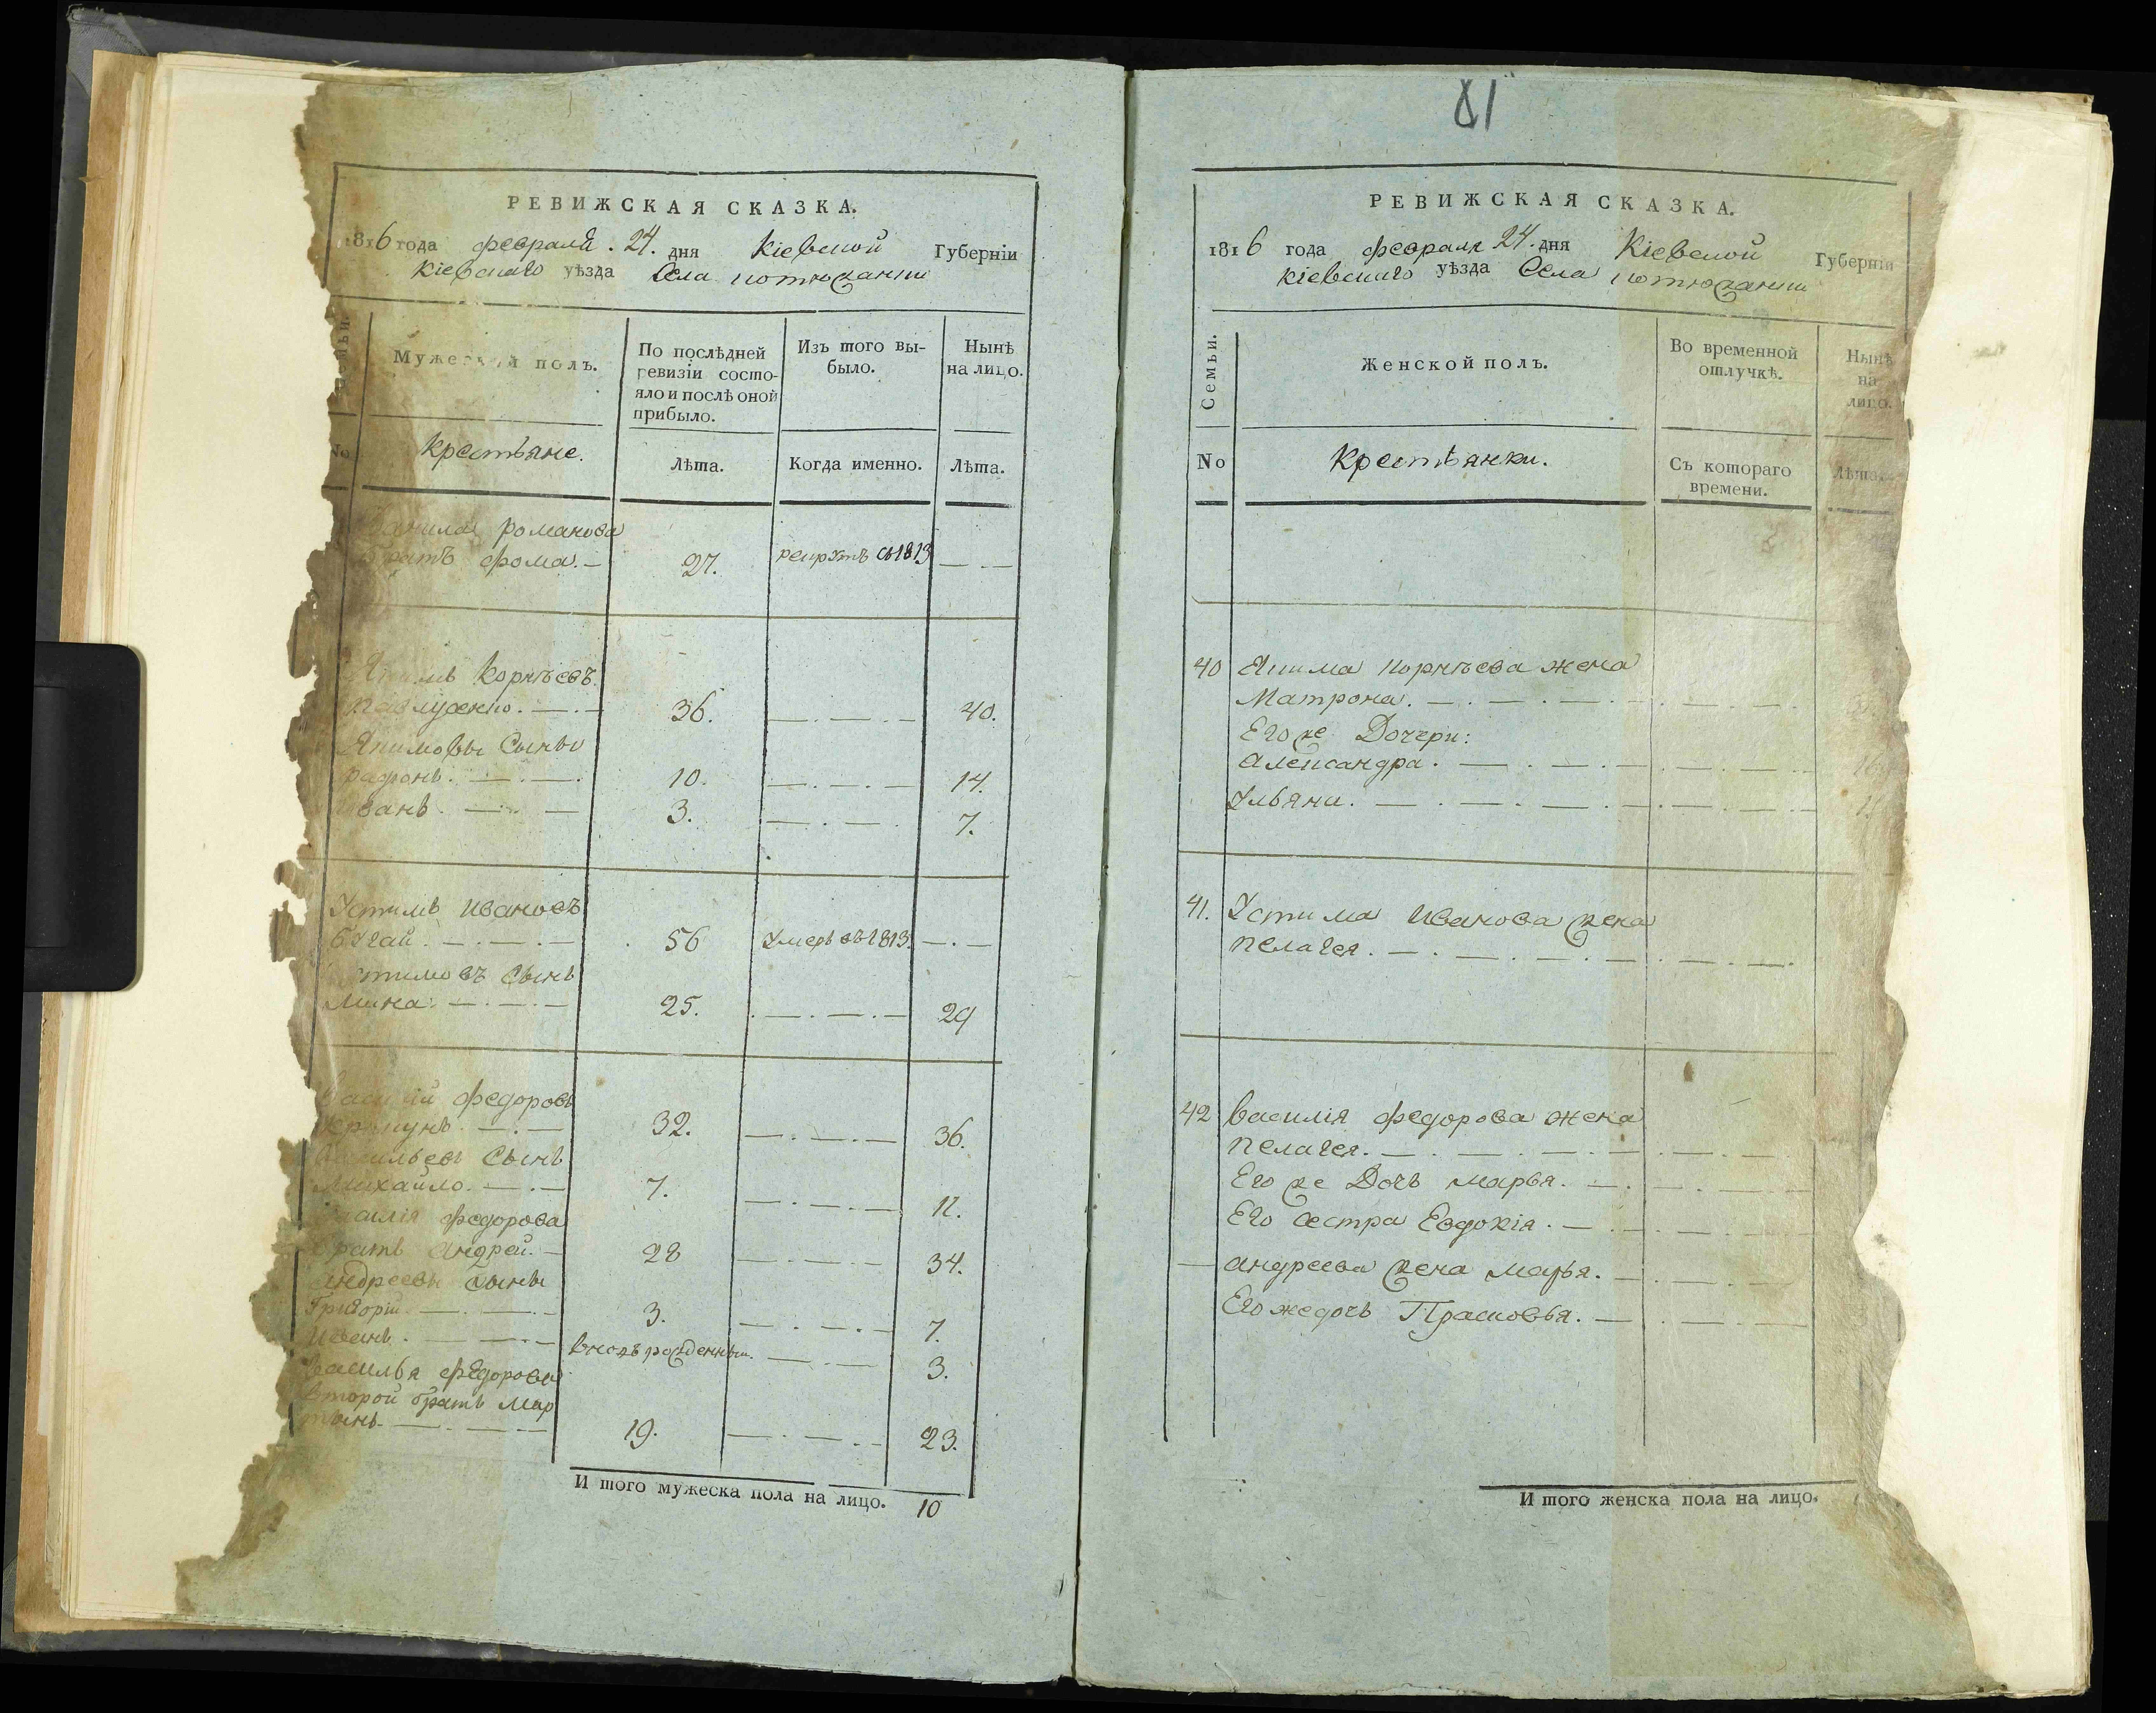 РЕВИЖСКАЯ СКАЗКА.
1816 года февраля 24. дня Кіевской Губерніи
Кіевскаго уѣзда Села
Семьи.
Мужескій полъ.
По послѣдней ревизіи состояло и послѣ оной прибыло.
Изъ того выбыло.
Нынѣ на лицо.
No
Крестьяне.
Лѣта.
Когда именно.
Лѣта.
Данила Романова
братъ фома. 27. рекрутъ съ 1813
Якимъ Корнѣевъ
36. 40.
Якимовы Сыны
10. 14.
Иванъ. 3. 7.
Устимъ Ивановъ
Бугай. 56 Умеръ въ 1813.
Устимовъ Сынъ
Мина. 25. 29
Василій федоровъ
32. 36.
Васильевъ Сынъ
Михайло. 7. 11.
Василія федорова
братъ Андрей. 28 34.
Андреевы сыны
Григорій. 3. 7.
Иванъ. вновь рожденный. 3.
Василья федорова
второй братъ Мар
тынъ. 19. 23.
И того мужеска пола на лицо. 10
81
РЕВИЖСКАЯ СКАЗКА.
1816 года февраля 24. дня Кіевской Губерніи
Кіевскаго уѣзда Села
Семьи.
Женской полъ.
Во временной отлучкѣ.
Нынѣ на лицо.
No
Крестьянки.
Съ котораго времени.
Лѣта.
40 Якима Корнѣева жена
Матрона.
Его же Дочери:
Александра. 16
Ульяна. 11.
41. Устима Иванова жена
Пелагея.
42 Василія федорова жена
Пелагея.
Его же Дочь Марья.
Его сестра Евдокія.
Андреева жена Марья.
Его же дочь Прасковья.
И того женска пола на лицо.